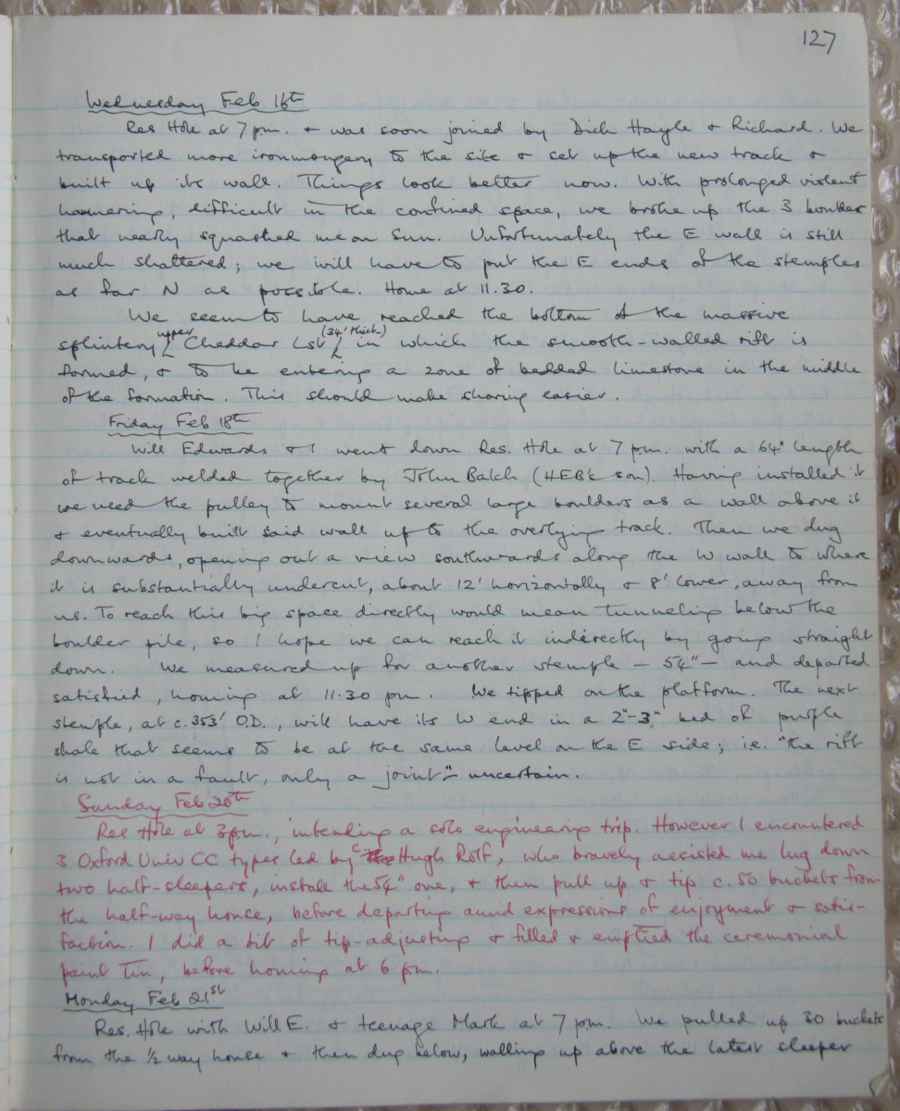 127
Wednesday Feb 16th
Res Hole at 7 pm. & was soon joined by Dick Hayle & Richard. We
transported more ironmongery to the site & set up the new track &
built up its wall. Things look better now. With prolonged violent
hammering, difficult in the confined space, we broke up the 3 boulder
that nearly squashed me on Sun. Unfortunately the E wall is still
much shattered; we will have to put the E ends of the stemples
as far N as possible. Home at 11.30.
We seem to have reached the bottom of the massive
splintery upper Cheddar Lst (34' thick) in which the smooth-walled rift is
formed, & to be entering a zone of bedded limestone in the middle
of the formation. This should make shoring easier.
Friday Feb 18th
Will Edwards & I went down Res. Hole at 7 pm. with a 64" length
of track welded together by John Balch (HEB's son). Having installed it
we used the pulley to mount several large boulders as a wall above it
& eventually built said wall up to the overlying track. Then we dug
downwards, opening out a view southwards along the W wall to where
it is substantially undercut, about 12' horizontally & 8' lower, away from
us. To reach this big space directly would mean tunneling below the
boulder pile, so I hope we can reach it indirectly by going straight
down. We measured up for another stemple – 54" – and departed
satisfied, homing at 11:30 pm. We tipped on the platform. The next
stemple, at c.353' O.D., will have its W end in a 2"-3" bed of purple
shale that seems to be at the same level on the E side; i.e. "the rift
is not in a fault, only a joint" – uncertain.
Sunday Feb 20th
Res Hole at 3pm., intending a solo engineering trip. However I encountered
3 Oxford Univ CC types led by Hugh Rolf, who bravely assisted me lug down
two half-sleepers, install the 54" one, & then pull up & tip c. 50 buckets from
the half-way house, before departing amid expressions of enjoyment & satis-
faction. I did a bit of tip-adjusting & filled & emptied the ceremonial
paint tin, before homing at 6 pm.
Monday Feb 21st
Res. Hole with Will E. & teenage Mark at 7 pm. We pulled up 30 buckets
from the ½ way house & then dug below, walling up above the latest sleeper